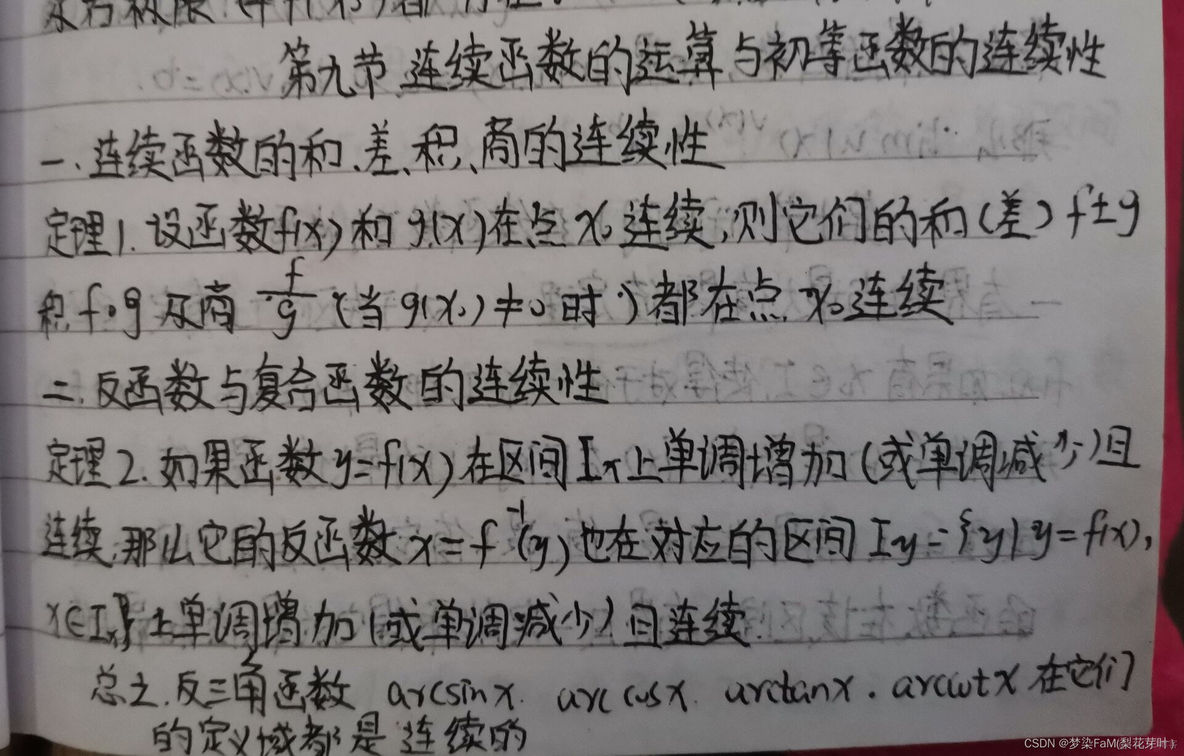 第九节 连续函数的运算与初等函数的连续性
一.连续函数的和、差、积、商的连续性
定理1.设函数f(x)和g(x)在点x₀连续,则它们的和(差)f±g
积f·g及商 f/g (当g(x₀)≠0时)都在点x₀连续
二.反函数与复合函数的连续性
定理2.如果函数y=f(x)在区间Iₓ上单调增加(或单调减少)且
连续,那么它的反函数x=f⁻¹(y)也在对应的区间Iy={y|y=f(x),
x∈Iₓ}上单调增加(或单调减少)且连续.
总之.反三角函数 arcsinx. arccosx. arctanx. arccotx在它们
的定义域都是连续的
CSDN @梦染FaM(梨花芽叶)